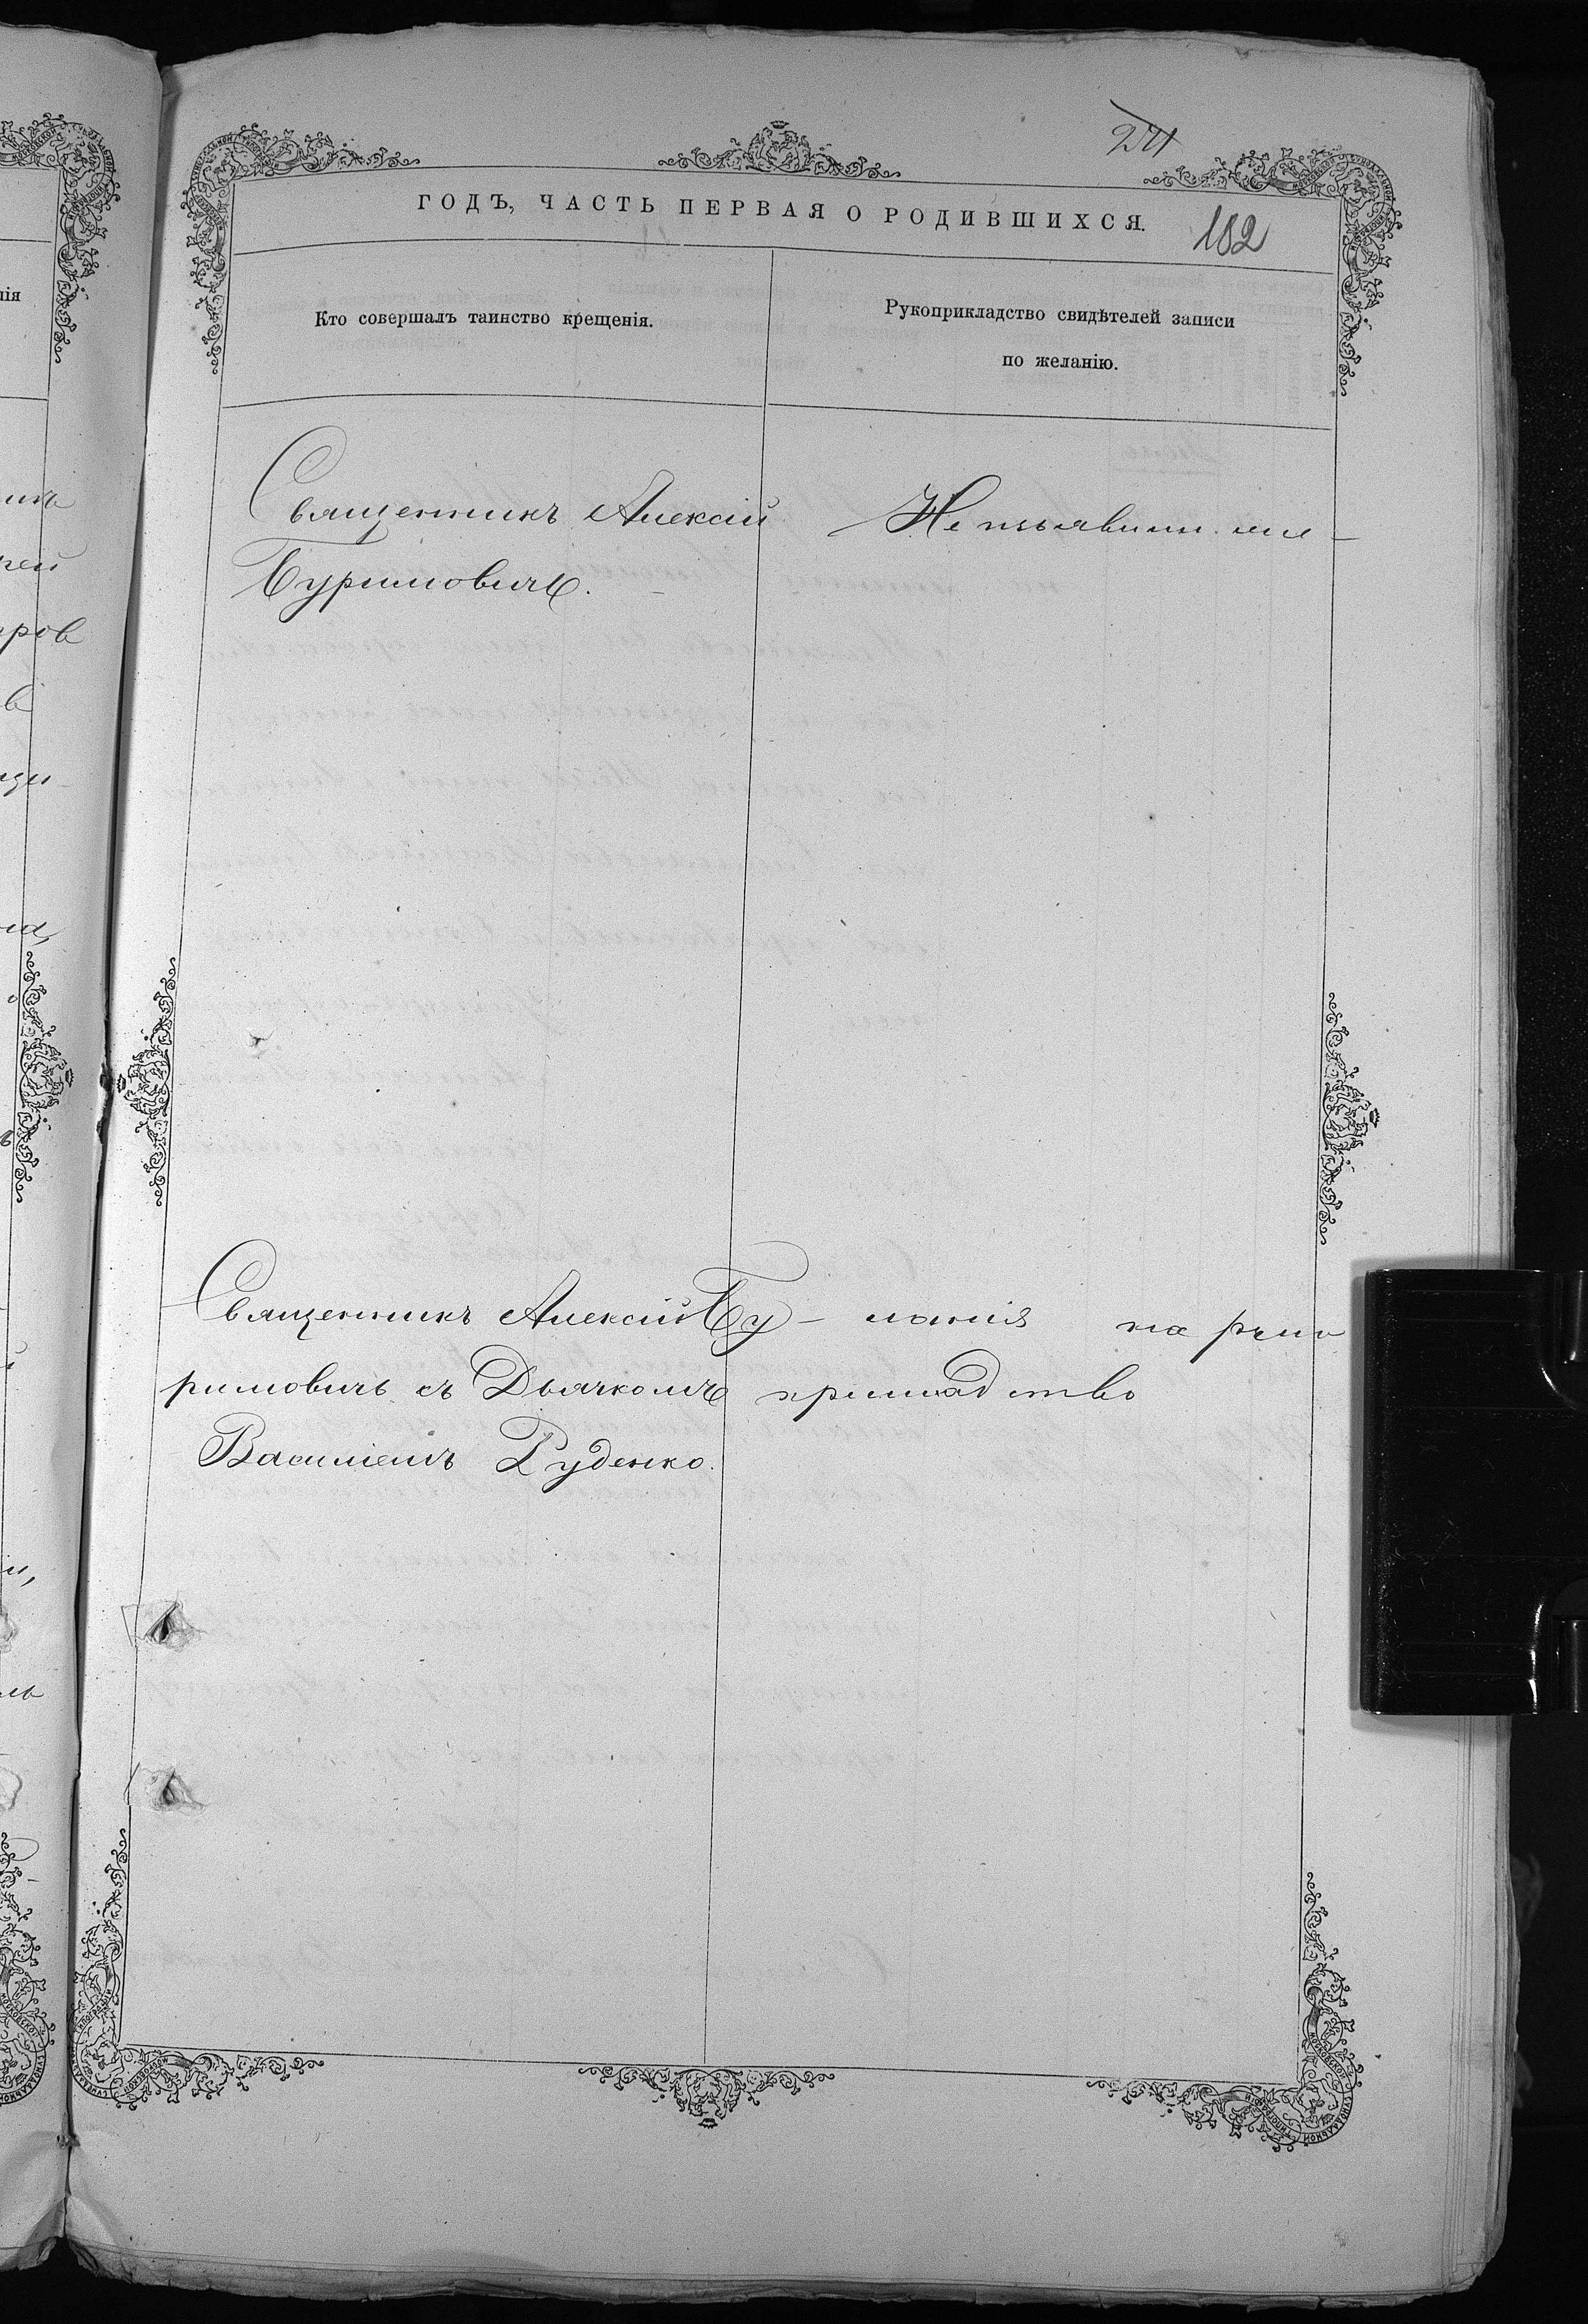 271
ГОДЪ, ЧАСТЬ ПЕРВАЯ О РОДИВШИХСЯ.
182
Кто совершалъ таинство крещенія.
Рукоприкладство свидѣтелей записи
по желанію.
Священникъ Алексій
Буримовичъ.
Не изъявили же-
Священникъ Алексій Бу-
римовичъ съ Дьячкомъ
Василіемъ Руденко.
ланія на руко
прикладство